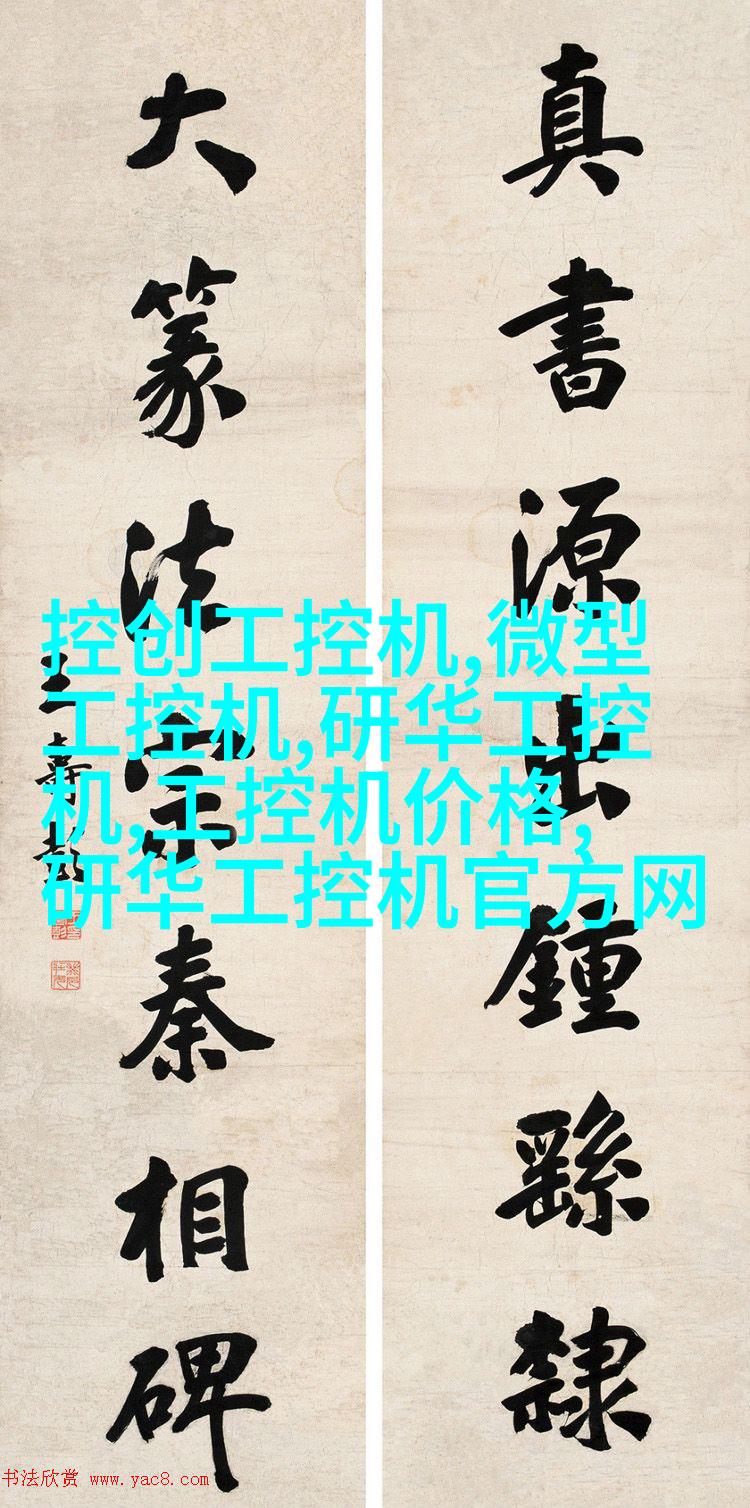 真書源出鍾繇隸
大篆法宗秦相碑
王壽彭
控创工控机,微型
工控机,研华工控
机,工控机价格,
研华工控机官方网
书法欣赏 www.yac8.com